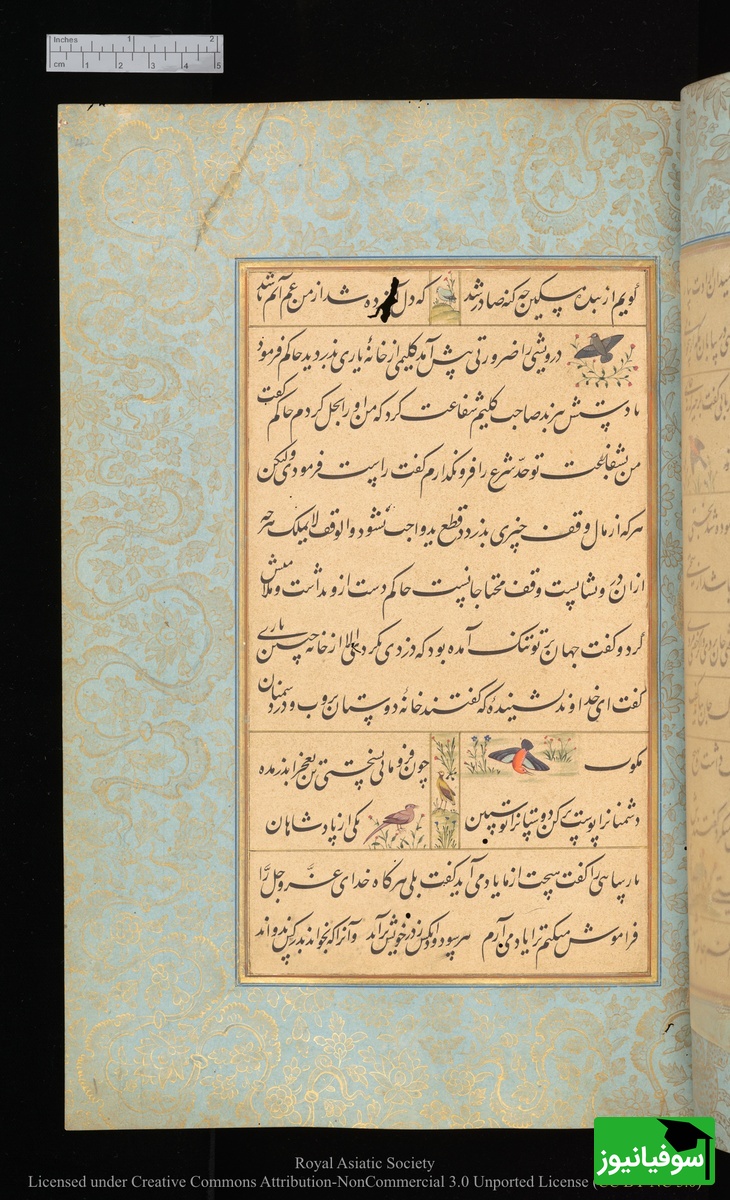 Inches 1 2
cm 1 2 3 4 5
گویم از بنده مسکین چه گنه صادر شد که دل آزرده شد از من غم آنم باشد
درویشی را ضرورتی پیش آمد گلیمی از خانهٔ یاری بدزدید حاکم فرمود
تا دستش ببرند صاحب گلیم شفاعت کرد که من او را بحل کردم حاکم گفت
من بشفاعت تو حدّ شرع را فرو نگذارم گفت راست فرمودی ولیکن
هر که از مال وقف چیزی بدزدد قطع ید واجب نشود والوقف لا یملک هر چه
ازان درویشانست وقف محتاجانست حاکم دست ازو بداشت و ملامتش
کرد و گفت جهان بر تو تنگ آمده بود که دزدی نکردی الا از خانه چنین یاری
گفت ای خداوند نشنیدهٔ که گفتند خانهٔ دوستان بروب و در دشمنان
مکوب چون فرو مانی بسختی تن بعجز اندر مده
دشمنانرا پوست برکن دوستانرا پوستین یکی از پادشاهان
پارسایی را گفت هیچت از ما یاد می آید گفت بلی هر گاه خدای عزّ و جلّ را
فراموش میکنم ترا یاد می آرم هر سو دود آنکس ز در خویش براند وآنرا که بخواند بدر کس ندواند
سوفیانیوز
Royal Asiatic Society
Licensed under Creative Commons Attribution-NonCommercial 3.0 Unported License